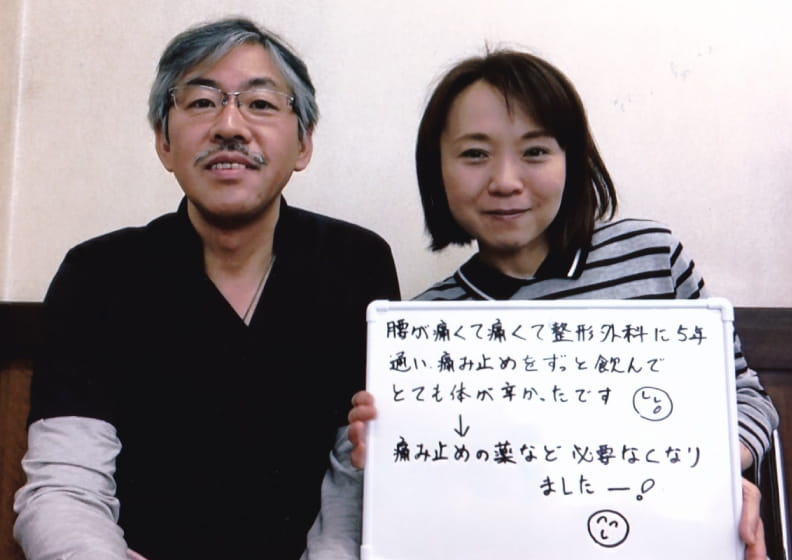 腰が痛くて痛くて整形外科に5年
通い、痛み止めをずっと飲んで
とても体が辛かったです
↓
痛み止めの薬など必要なくなり
ましたー!